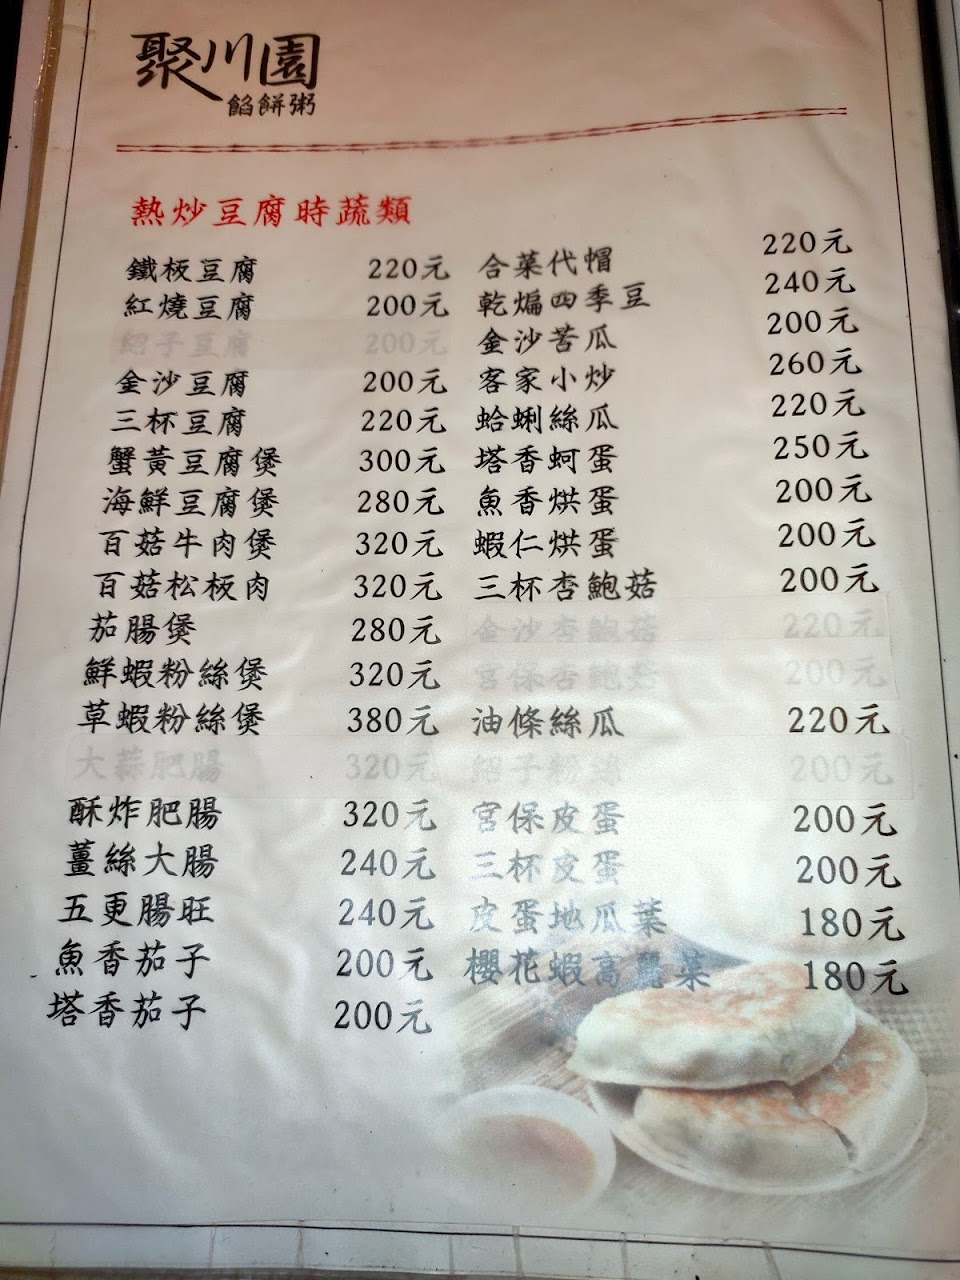 聚川園
餡餅粥
熱炒豆腐時蔬類
鐵板豆腐 220元
紅燒豆腐 200元
紹子豆腐 200元
金沙豆腐 200元
三杯豆腐 220元
蟹黃豆腐煲 300元
海鮮豆腐煲 280元
百菇牛肉煲 320元
百菇松板肉 320元
茄腸煲 280元
鮮蝦粉絲煲 320元
草蝦粉絲煲 380元
大蒜肥腸 320元
酥炸肥腸 320元
薑絲大腸 240元
五更腸旺 240元
魚香茄子 200元
塔香茄子 200元
合菜代帽 220元
乾煸四季豆 240元
金沙苦瓜 200元
客家小炒 260元
蛤蜊絲瓜 220元
塔香蚵蛋 250元
魚香烘蛋 200元
蝦仁烘蛋 200元
三杯杏鮑菇 200元
金沙杏鮑菇 220元
宮保杏鮑菇 200元
油條絲瓜 220元
紹子粉絲 200元
宮保皮蛋 200元
三杯皮蛋 200元
皮蛋地瓜葉 180元
櫻花蝦高麗菜 180元